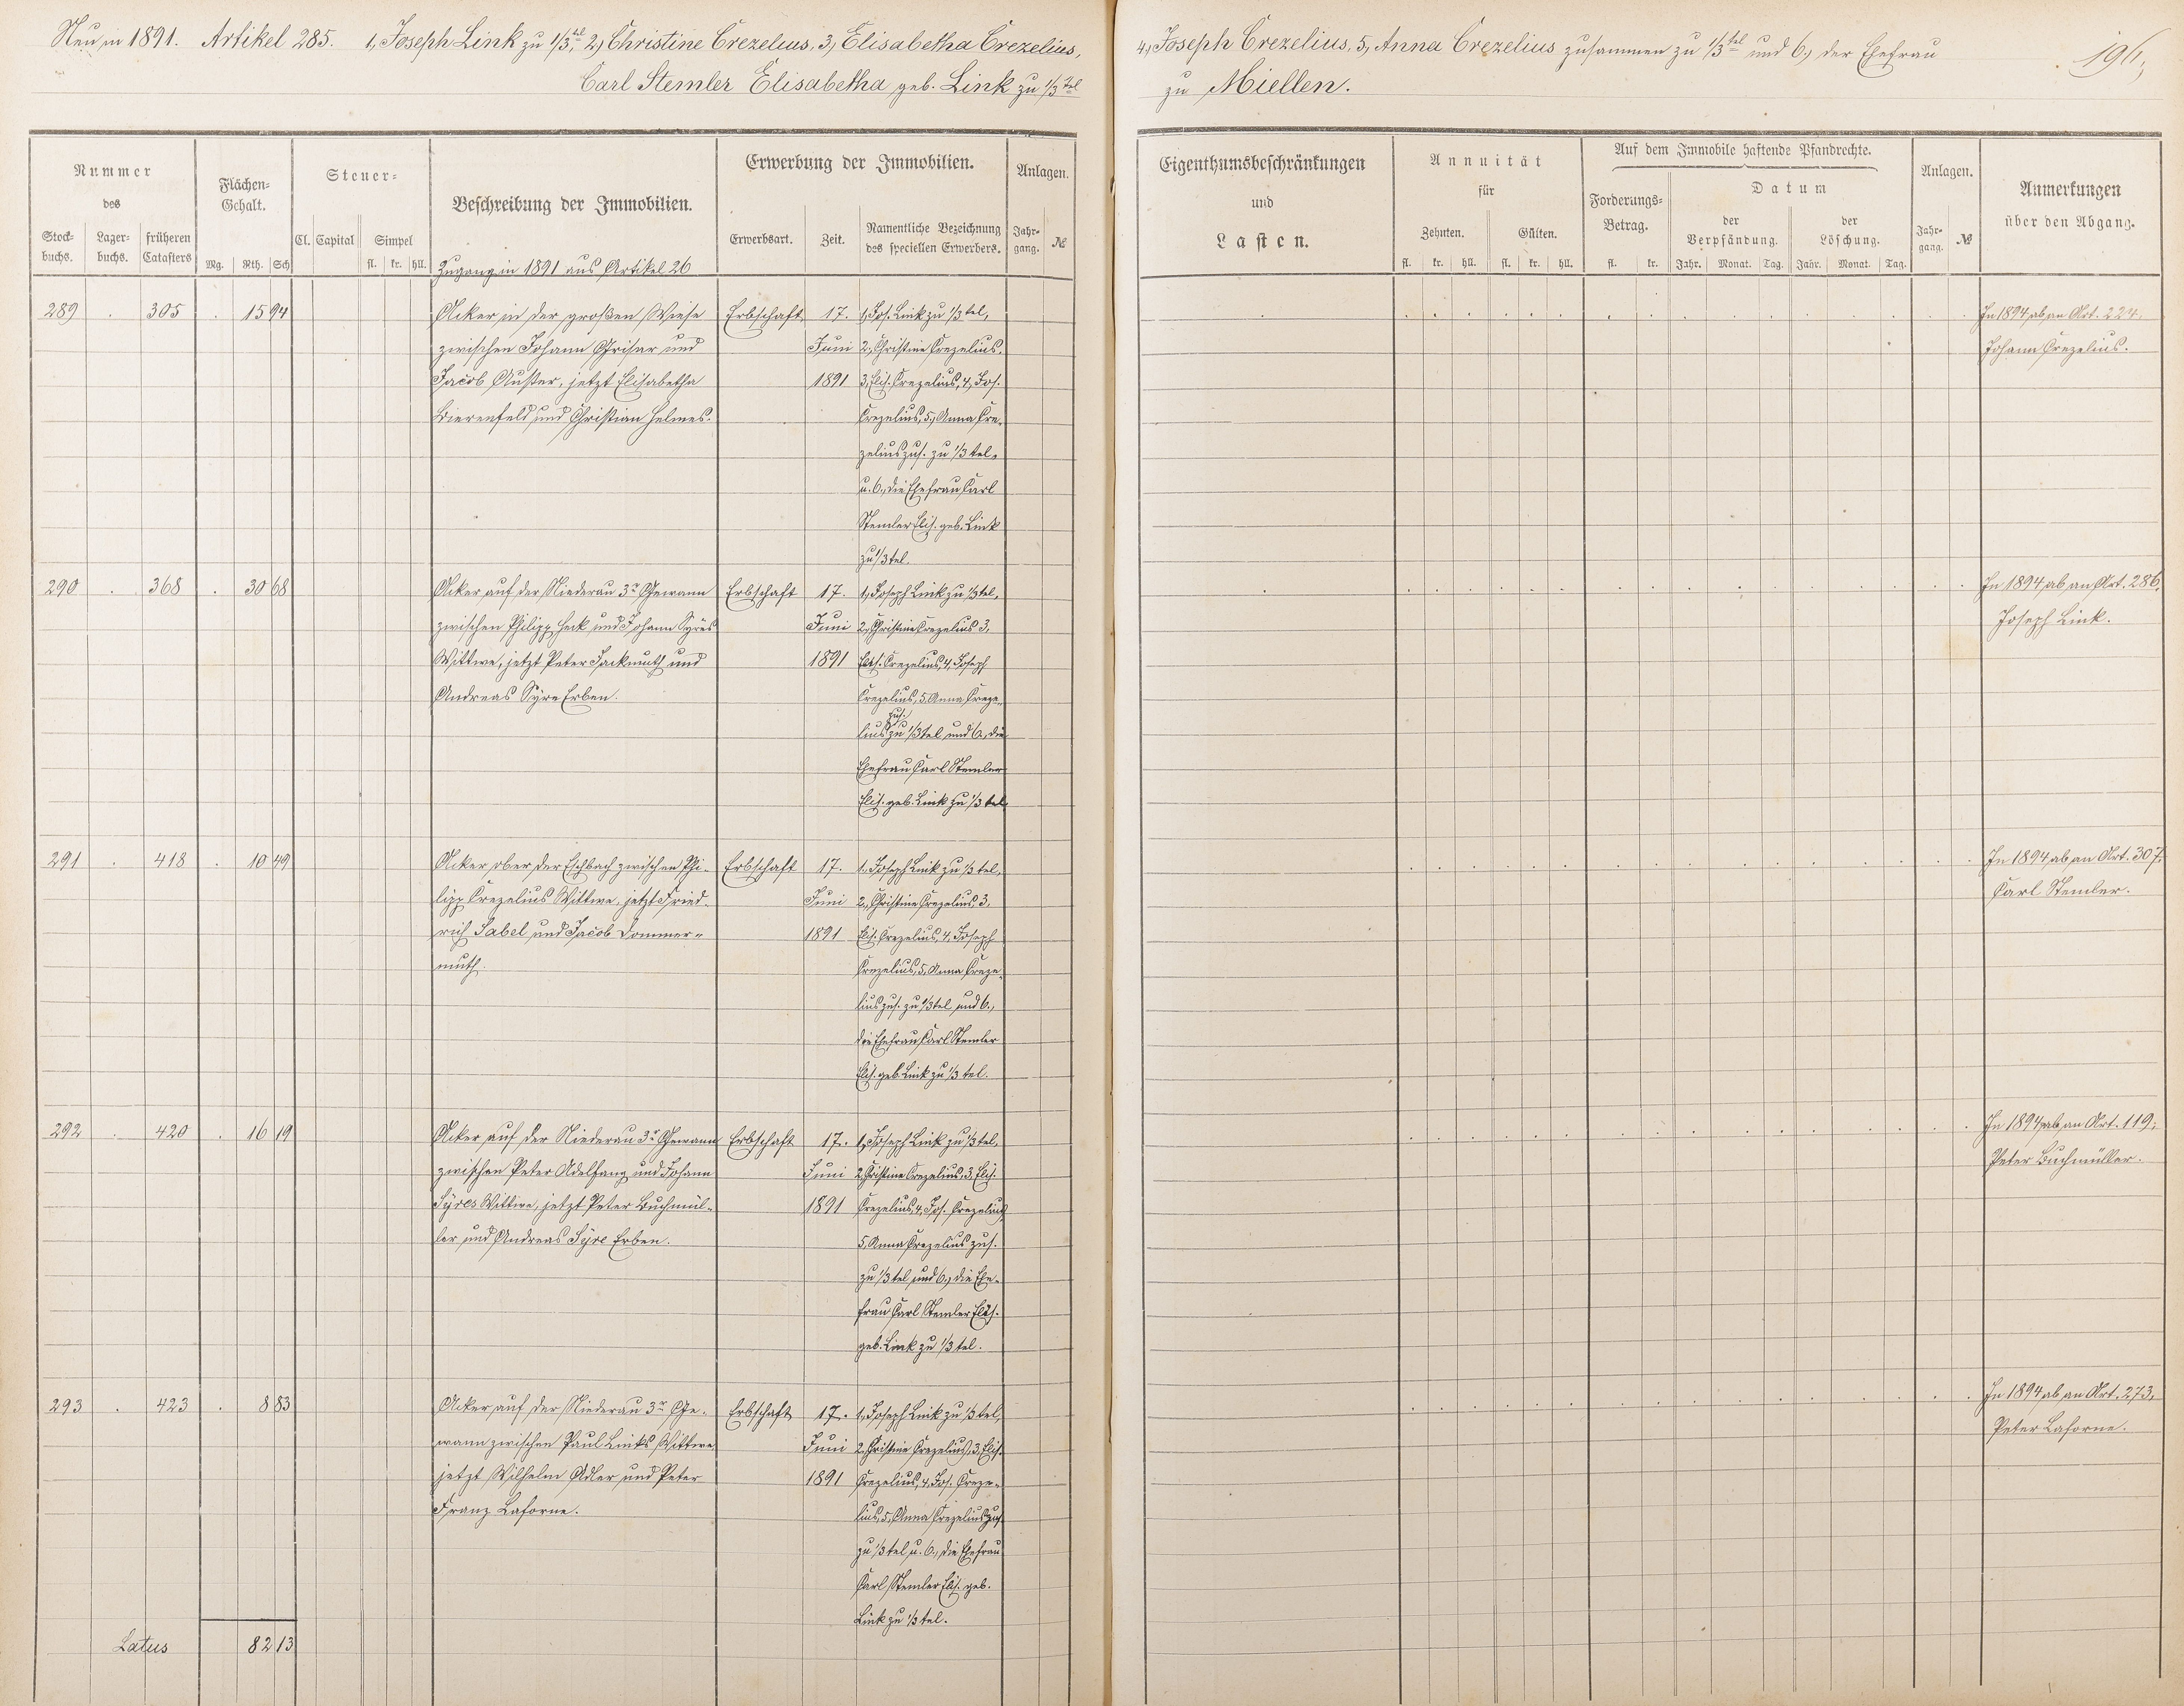 Neu in 1891. Artikel 285. 1, Joseph Link zu 1/3tel, 2, Christine Crezelius, 3, Elisabetha Crezelius,
Carl Stemler Elisabetha geb. Link zu 1/3tel
4, Joseph Crezelius, 5, Anna Crezelius zusammen zu 1/3tel und 6, der Ehefrau
zu Miellen.
Nummer
des
Stock-
buchs.
Lager-
buchs.
früheren
Catasters
Flächen-
Gehalt.
Mg. Rth. Sch
Steuer-
Cl. Capital Simpel
fl. kr. hll.
Beschreibung der Immobilien.
Erwerbung der Immobilien.
Erwerbsart. Zeit.
Namentliche Bezeichnung
des speciellen Erwerbers.
Anlagen.
Jahr-
gang. №
Zugang in 1891 aus Artikel 26
289 . 305 . 15 94
Acker in der großen Wiese
zwischen Johann Grisar und
Jacob Außer, jetzt Elisabetha
Bierenfeld und Christian Helmes.
Erbschaft
17.
Juni
1891
1, Jos. Link zu 1/3tel,
2, Christine Crezelius,
3, Elis. Crezelius, 4, Jos.
Crezelius, 5, Anna Cre-
zelius zus. zu 1/3tel.
u. 6, die Ehefrau Carl
Stemler Elis. geb. Link
zu 1/3tel.
290 . 368 . 30 68
Acker auf der Niederau 3r Gewann
zwischen Philipp Heck und Johann Syres
Wittwe, jetzt Peter Sackmuth und
Andreas Syre Erben.
Erbschaft
17.
Juni
1891
1, Joseph Link zu 1/3tel,
2, Christine Crezelius 3,
Elis. Crezelius, 4, Joseph
Crezelius, 5, Anna Creze-
lius zus. zu 1/3tel und 6, die
Ehefrau Carl Stemler
Elis. geb. Link zu 1/3tel
291 . 418 . 10 49
Acker ober der Eschbach zwischen Phi-
lipp Crezelius Wittwe, jetzt Fried-
rich Sabel und Jacob Dommer-
muth.
Erbschaft
17.
Juni
1891
1, Joseph Link zu 1/3tel,
2, Christine Crezelius, 3,
Elis. Crezelius, 4, Joseph
Crezelius, 5, Anna Creze-
lius zus. zu 1/3tel und 6.,
die Ehefrau Carl Stemler
Elis. geb. Link zu 1/3tel.
292 . 420 . 16 19
Acker auf der Niederau 3r Gewann
zwischen Peter Adelfang und Johann
Syres Wittwe, jetzt Peter Buchmül-
ler und Andreas Syre Erben.
Erbschaft
17.
Juni
1891
1, Joseph Link zu 1/3tel,
2, Christine Crezelius, 3, Elis.
Crezelius, 4, Jos. Crezelius,
5, Anna Crezelius zus.
zu 1/3tel und 6, die Ehe-
frau Carl Stemler Elis.
geb. Link zu 1/3tel.
293 . 423 . 8 83
Acker auf der Niederau 3r Ge-
wann zwischen Paul Links Wittwe
jetzt Wilhelm Adler und Peter
Franz Laforne.
Erbschaft
17.
Juni
1891
1, Joseph Link zu 1/3tel,
2, Christine Crezelius, 3, Elis.
Crezelius, 4, Jos. Creze-
lius, 5, Anna Crezelius zus.
zu 1/3tel u. 6., die Ehefrau
Carl Stemler Elis. geb.
Link zu 1/3tel.
Latus 82 13
Eigenthumsbeschränkungen
und
Lasten.
Annuität
für
Zehnten. Gülten.
fl. kr. hll. fl. kr. hll.
Auf dem Immobile haftende Pfandrechte.
Forderungs-
Betrag.
fl. kr.
Datum
der
Verpfändung.
der
Löschung.
Jahr. Monat. Tag. Jahr. Monat. Tag.
Anlagen.
Jahr-
gang. №
Anmerkungen
über den Abgang.
In 1894 ab an Art. 224.
Johann Crezelius.
In 1894 ab an Art. 286.
Joseph Link.
In 1894 ab an Art. 307.
Carl Stemler.
In 1894 ab an Art. 119.
Peter Buchmüller.
In 1894 ab an Art. 273.
Peter Laforne.